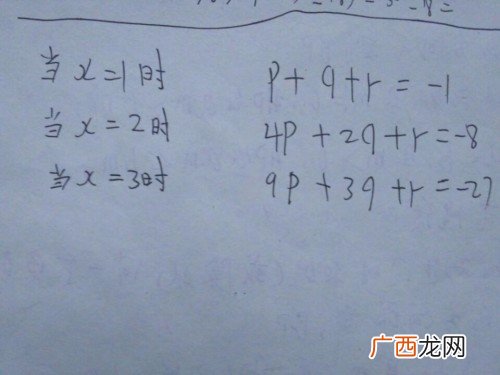 当 x=1 时 p+q+r=-1
当 x=2时 4p+2q+r=-8
当 x=3时 9p+3q+r=-27
广西龙网